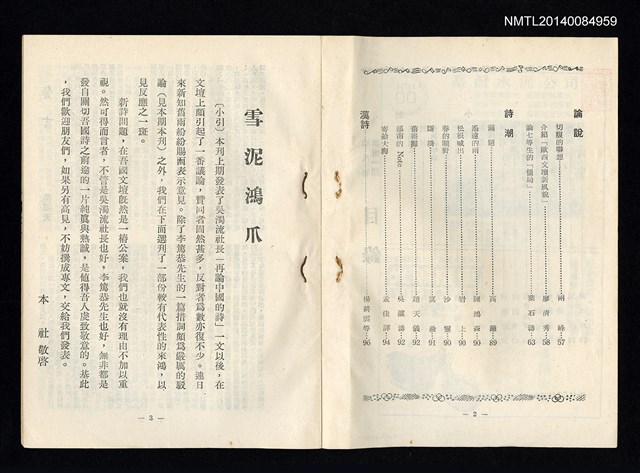 NMTL20140084959
論說
切腹的聯想……雨峰…57
介紹「歐西文壇新風貌」……廖清秀…58
論七等生的「僵局」……葉石濤…63
詩潮
…89
遙遠的雨……90
松根城出……岩上…90
春的期盼……沙靈…90
…91
舊街掃……趙天儀…92
越南的 Note……吳瀛濤…92
寄給大海……94
漢詩……楊嘯雲等…96
目錄
— 2 —
雪泥鴻爪
〔小引〕本刊上期發表了吳濁流社長「再論中國的詩」一文以後,在
文壇上頗引起了一番議論,贊同者固然甚多,反對者為數亦復不少。連日
來新知舊雨紛紛賜函表示意見。除了李篤恭先生的一篇措詞頗為嚴厲的駁
論(見本期本刊)之外,我們在下面選刊了一部份較有代表性的來鴻,以
見反應之一斑。
新詩問題,在吾國文壇旣然是一樁公案,我們也就沒有理由不加以重
視。然可得而言者,不管是吳濁流社長也好,李篤恭先生也好,無非都是
發自關切吾國詩之前途的一片純眞與熱誠,是值得吾人虔致敬意的。基此
,我們歡迎朋友們,如果另有高見,不妨撰成專文,交給我們發表。
本社敬啓
— 3 —